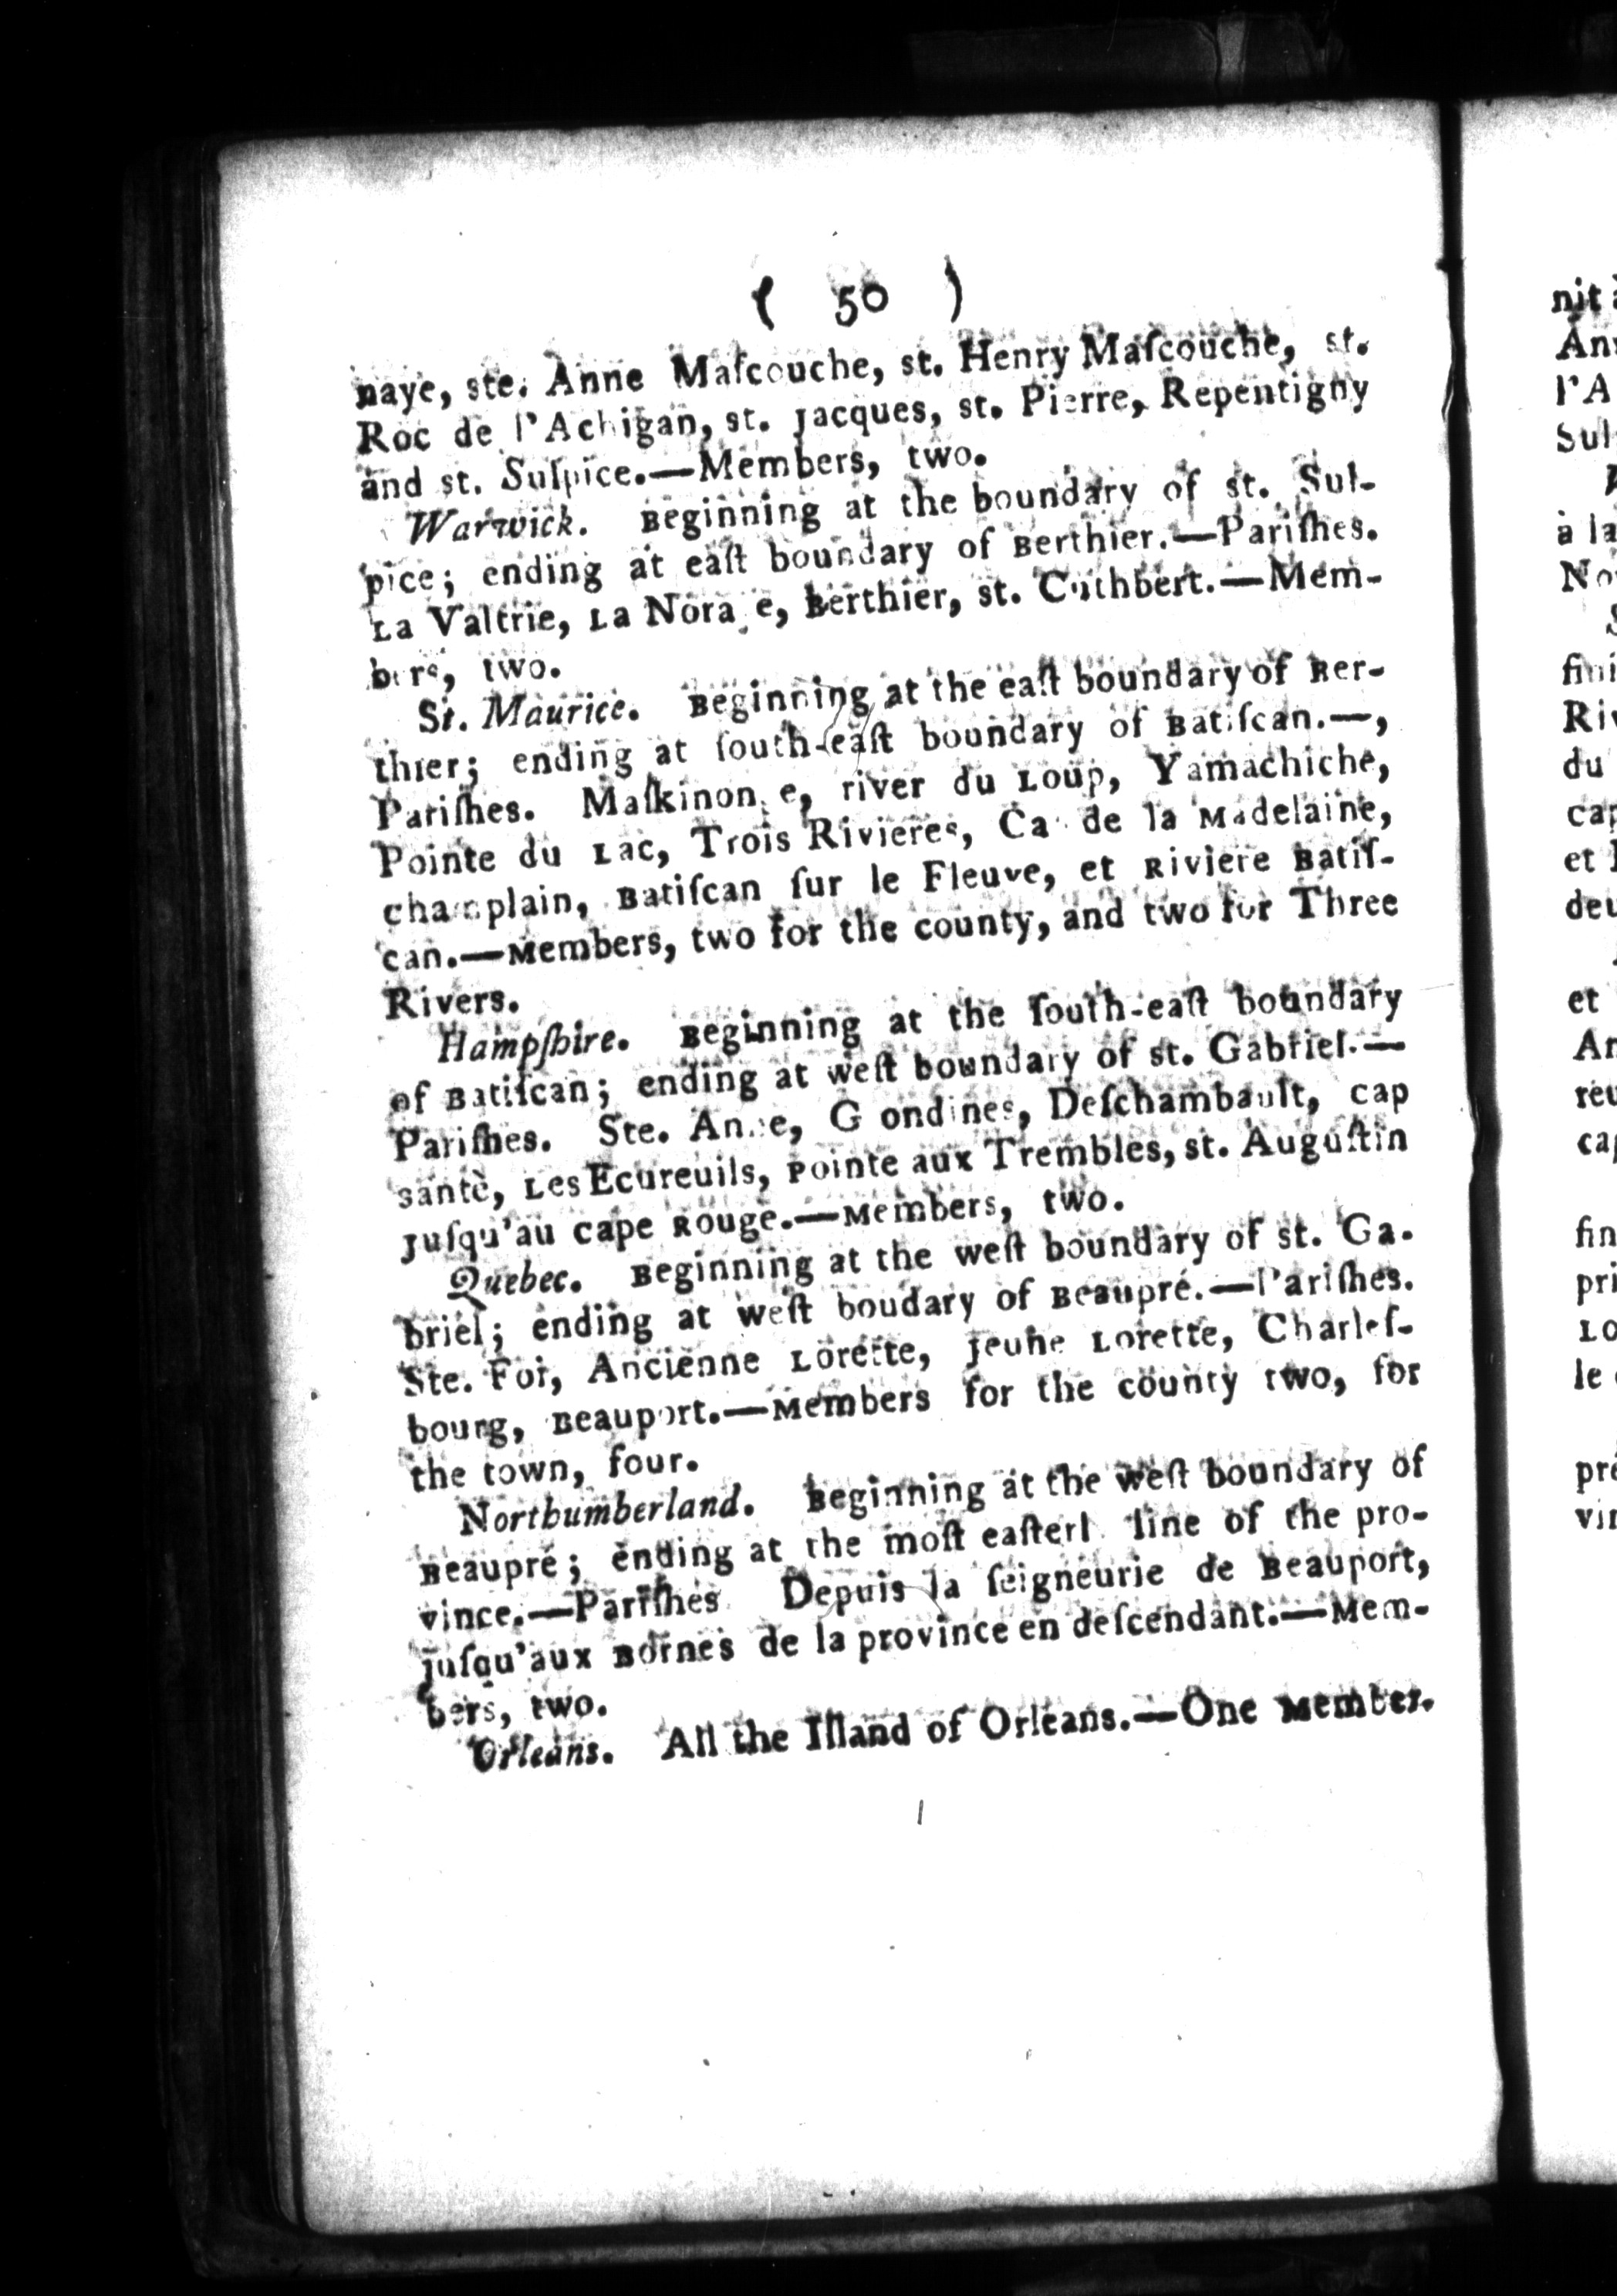 ( 50 )
naye, ste. Anne Maſcouche, st. Henry Maſcouche, st.
Roc de l'Achigan, st. Jacques, st. Pierre, Repentigny
and st. Sulpice.—Members, two.
Warwick. Beginning at the boundary of st. Sul-
pice; ending at eaſt boundary of Berthier.—Pariſhes.
La Valtrie, La Nora e, Berthier, st. Cuthbert.—Mem-
bers, two.
St. Maurice. Beginning at the eaſt boundary of Ber-
thier; ending at ſouth-eaſt boundary of Batiſcan.—,
Pariſhes. Maſkinon e, river du Loup, Yamachiche,
Pointe du Lac, Trois Rivieres, Ca de la Madelaine,
champlain, Batiſcan ſur le Fleuve, et Riviere Batiſ-
can.—Members, two for the county, and two for Three
Rivers.
Hampſhire. Beginning at the ſouth-eaſt boundary
of Batiſcan; ending at weſt boundary of st. Gabriel.—
Pariſhes. Ste. Anne, G ondines, Deſchambault, cap
santè, Les Ecureuils, Pointe aux Trembles, st. Auguſtin
Juſqu'au cape Rouge.—Members, two.
Quebec. Beginning at the weſt boundary of st. Ga-
briel; ending at weſt boudary of Beaupré.—Pariſhes.
Ste. Foi, Ancienne Lorette, Jeune Lorette, Charleſ-
bourg, Beauport.—Members for the county two, for
the town, four.
Northumberland. Beginning at the weſt boundary of
Beaupré; ending at the moſt eaſterl line of the pro-
vince.—Pariſhes Depuis la ſeigneurie de Beauport,
juſqu'aux Bornes de la province en deſcendant.—Mem-
bers, two.
Orleans. All the Iſland of Orleans.—One Member.
nit
An
l'A
Sul
à la
No
fini
Riv
du
cap
et
deu
et
An
reu
cap
fin
pri
LO
le
pré
vin